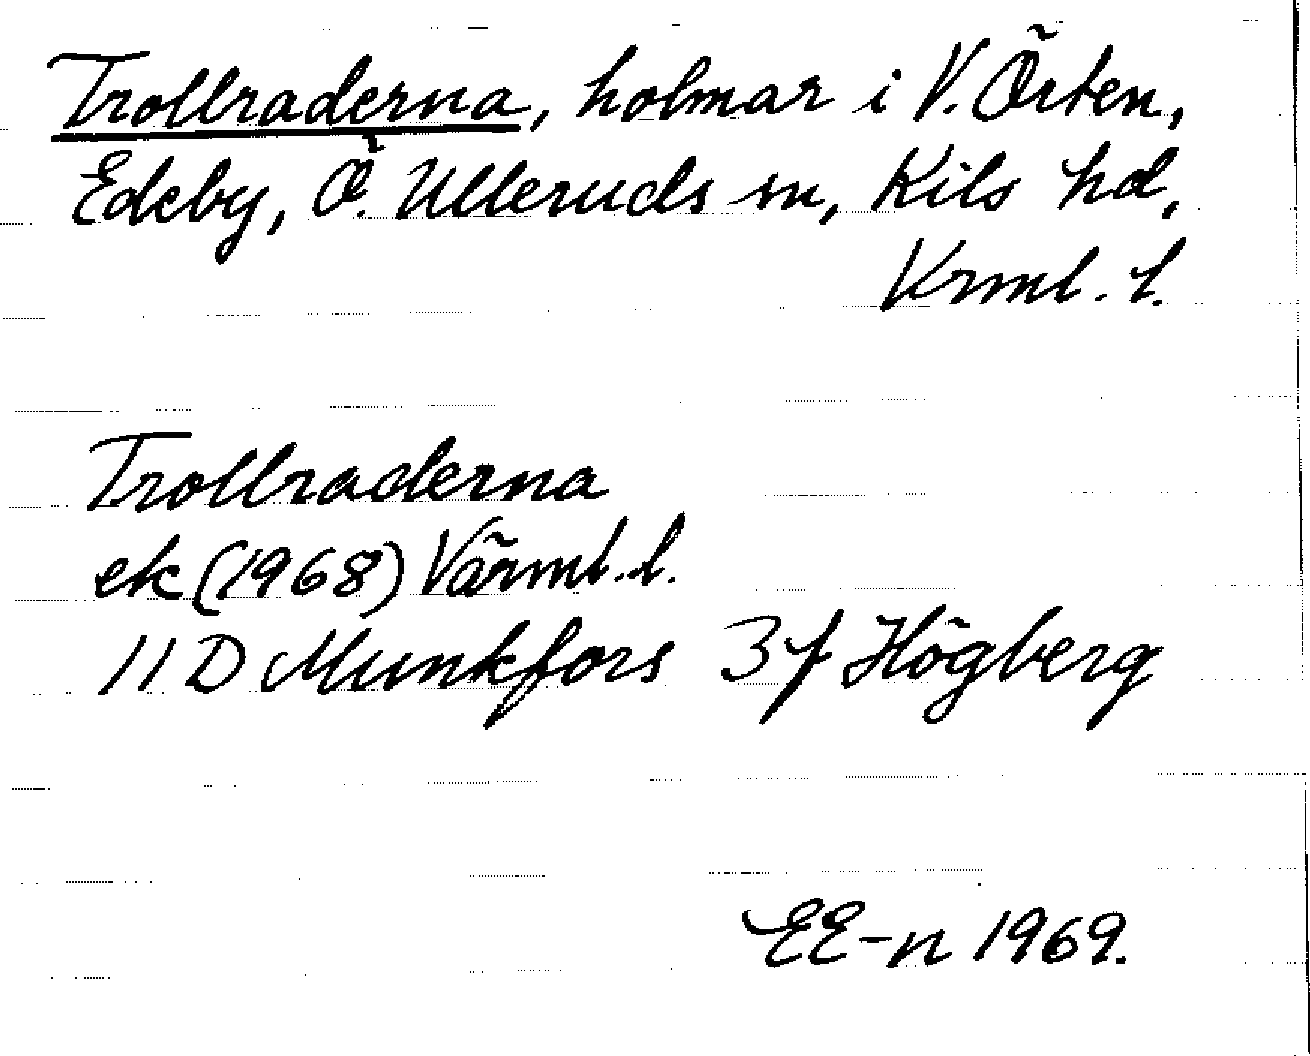 Trollraderna, holmar i V. Örten,
Edeby, Ö. Ulleruds sn, Kils hd,
Vrml. l.
Trollraderna
ek (1968) Värml. l.
11 D Munkfors 3 f Högberg
EE-n 1969.